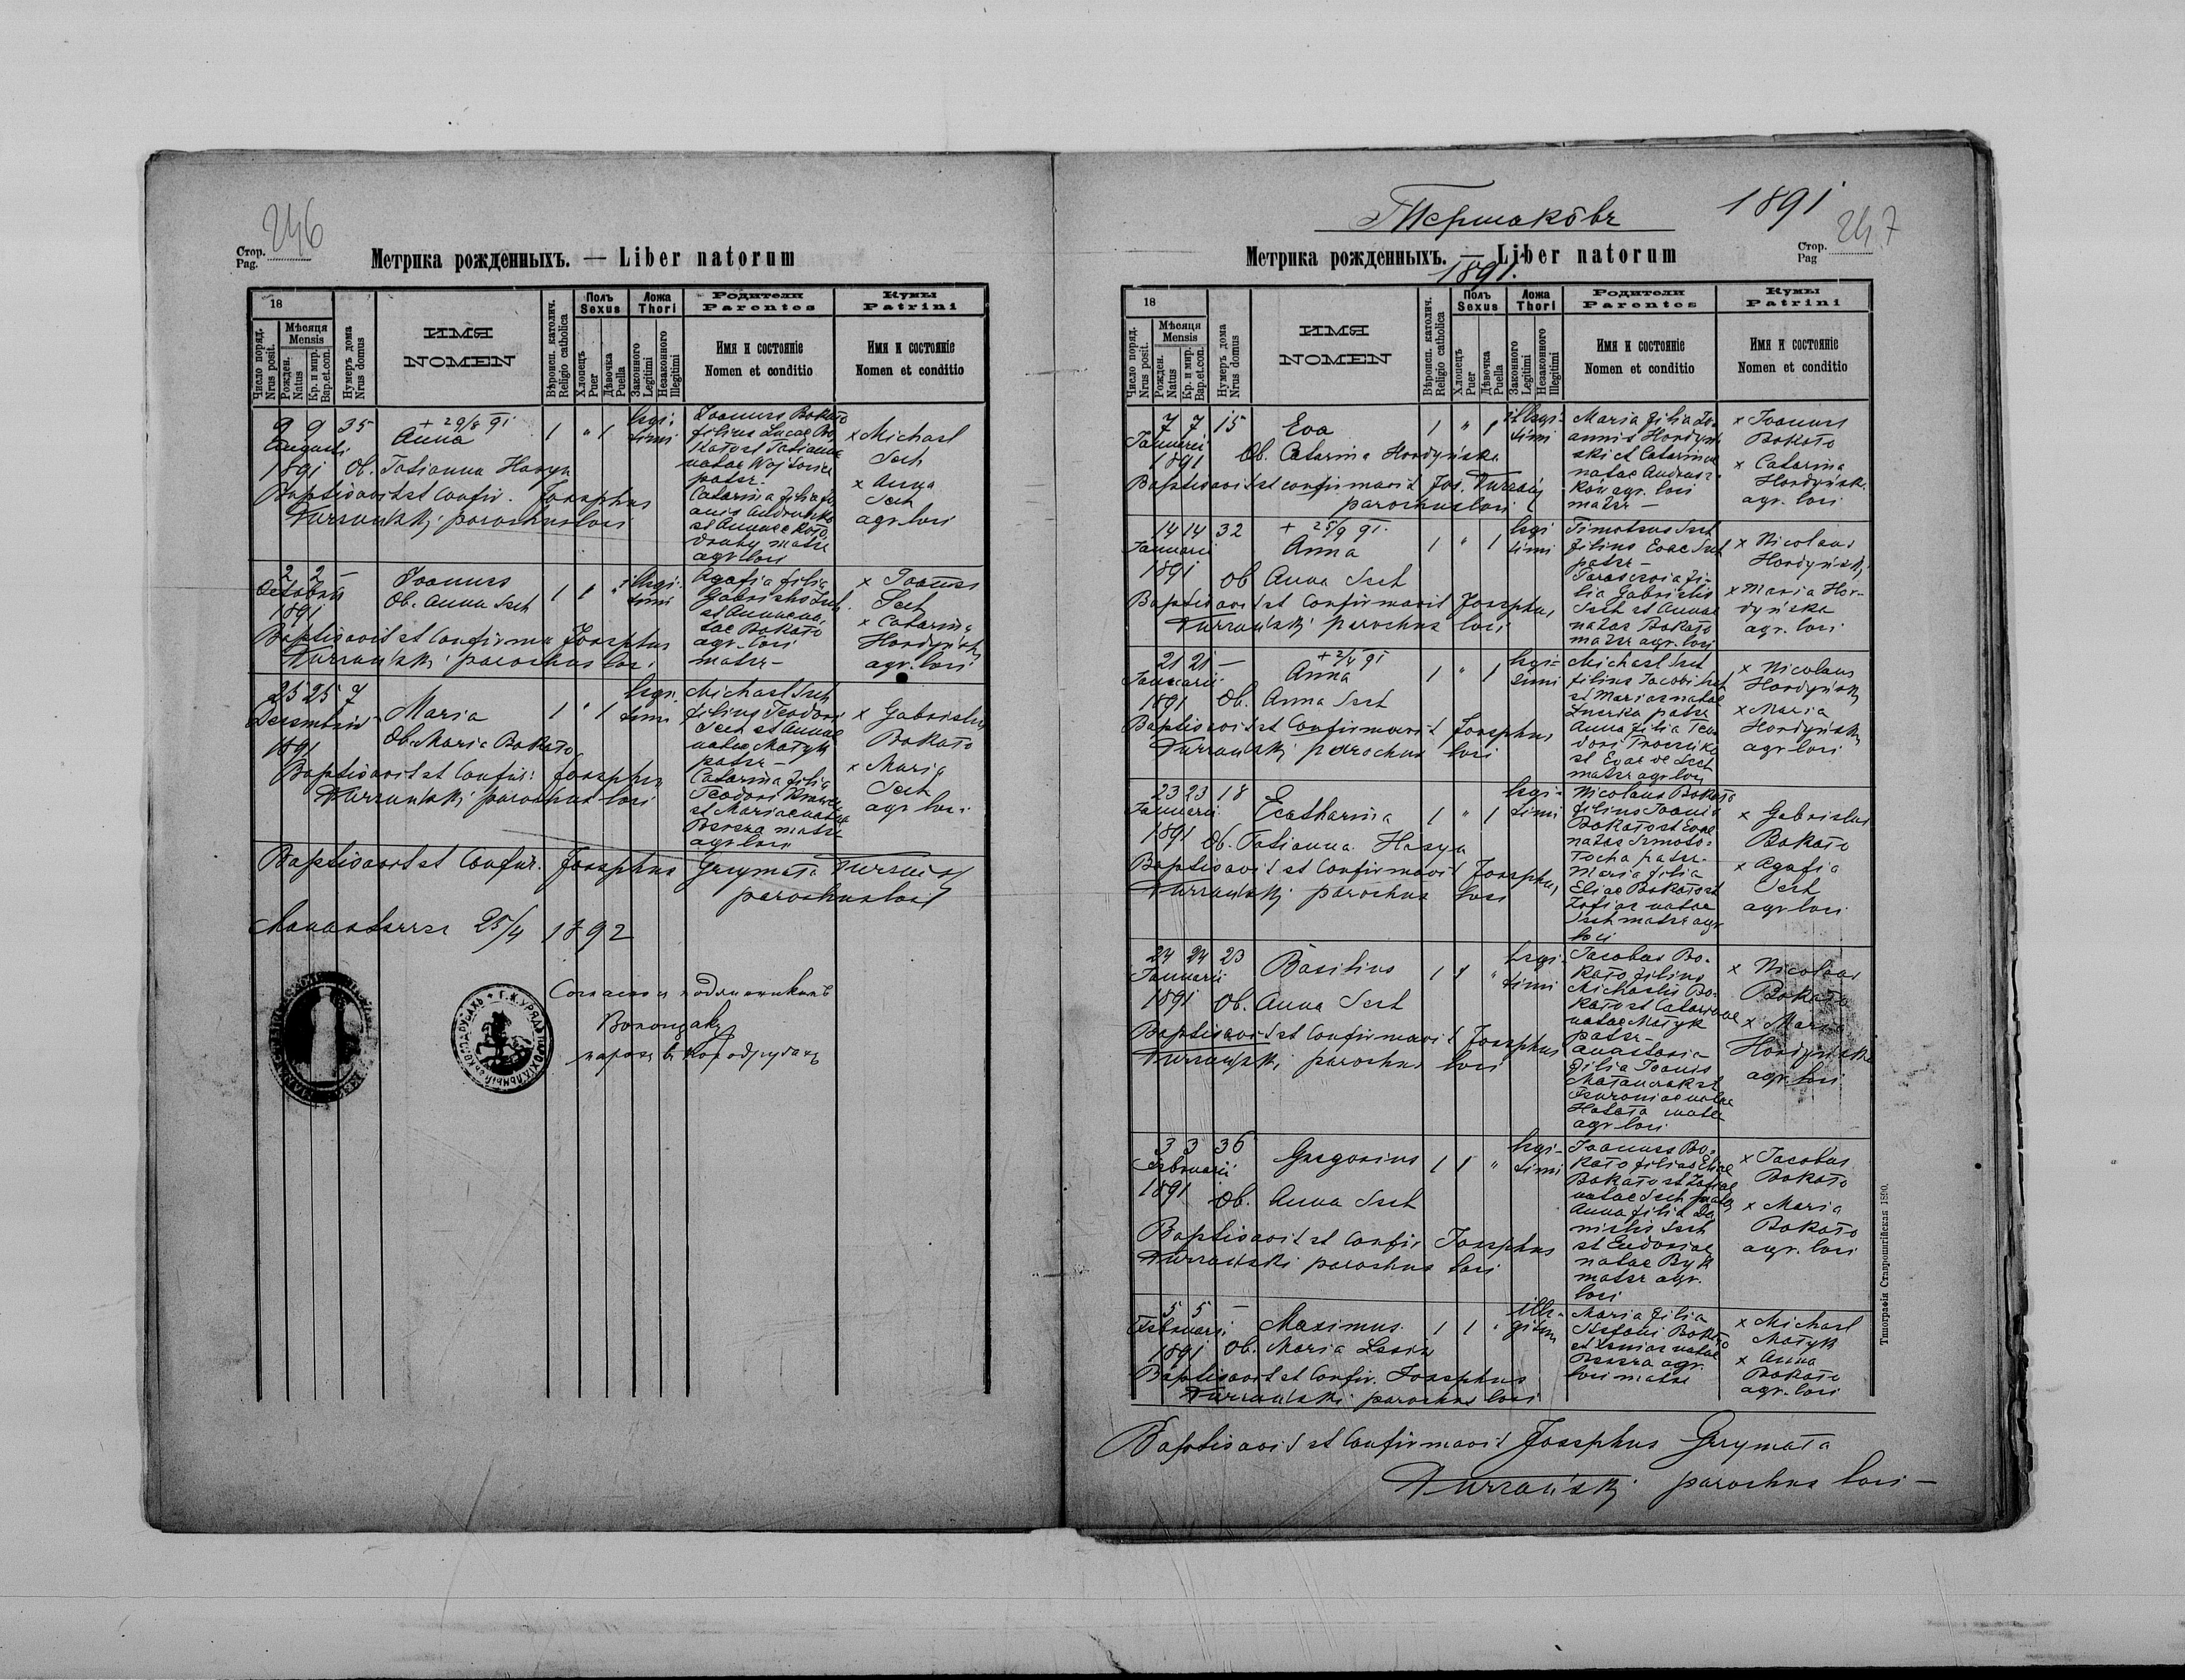 246
Стор.
Pag.
Метрика рожденныхъ. — Liber natorum
18
Число поряд.
Nrus posit.
Мѣсяця
Mensis
Рожден.
Natus
Кр. и мир.
Bap.et.con.
Нумеръ дома
Nrus domus
ИМЯ
NOMEN
Вѣроисп. католич.
Religio catholica
Полъ
Sexus
Хлопецъ
Puer
Дѣвочка
Puella
Ложа
Thori
Законного
Legitimi
Незаконного
Illegitimi
Родители
Parentes
Имя и состояніе
Nomen et conditio
Кумы
Patrini
Имя и состояніе
Nomen et conditio
9 9 35
Augusti
1891
+ 29/8 91
Anna
1 " 1
legi-
timi
Ob. Tatianna Hasyn
Baptisavit et Confir. Josephus
Turzański parochus loci
Joannes Bokało
filius Lucae Bo
kało et Tatianna
natae
patre.
Catarina filia Jo
anis Andrunko
et Annae Koto
matre
agr. loci
x Michael
Sech
x Anna
Sech
agr. loci
2 2 —
Octobris
1891
Joannes
Ob. Anna Sech
1 1 "
illegi-
timi
Baptisavit et Confirma Josephus
Turzański parochus loci
Agafia filia
Gabrielis Sech
et Annae na-
tae Bokało
agr. loci
matre —
x Joannes
Sech
x Catarina
Hordyńska
agr. loci
25 25 7
Decembris
1891
Maria
Ob. Maria Bokało
1 " 1
legi-
timi
Baptisavit et Confir. Josephus
Turzański parochus loci
Michael Sech
filius Teodori
Sech et Annae
natae Matyk
patre —
Catarina filia
Teodori
et Mariae natae
matre
agr. loci
x Gabrielus
Bokało
x Maria
Sech
agr. loci
Baptisavit et Confir. Josephus Grzymała Turzański
parochus loci
25/4 1892
Согласно з подлинникомъ
парох в Колодрубахъ
1891
Тершаковъ
247
Стор.
Pag
Метрика рожденныхъ. — Liber natorum
1891.
18
Число поряд.
Nrus posit.
Мѣсяця
Mensis
Рожден.
Natus
Кр. и мир.
Bap.et.con.
Нумеръ дома
Nrus domus
ИМЯ
NOMEN
Вѣроисп. католич.
Religio catholica
Полъ
Sexus
Хлопецъ
Puer
Дѣвочка
Puella
Ложа
Thori
Законного
Legitimi
Незаконного
Illegitimi
Родители
Parentes
Имя и состояніе
Nomen et conditio
Кумы
Patrini
Имя и состояніе
Nomen et conditio
7 7 15
Januarii
1891
Eva
1 " 1
illegi-
timi
Ob. Catarina Hordyńska
Baptisavit et confirmavit Jos. Turzański
parochus loci
Maria filia Jo-
annis Hordyń-
ski et Catarinae
natae Andrusz-
ków agr. loci
matre —
x Joannes
Bokało
x Catarina
Hordyńsk.
agr. loci
14 14 32
Januarii
1891
+ 25/9 91.
Anna
1 " 1
legi
timi
Ob Anna Sech
Baptisavit et Confirmavit Josephus
Turzański parochus loci
Timoteus Sech
filius Evae Sech
patre —
Parascevia fi-
lia Gabrielis
Sech et Annae
natae Bokało
matre agr. loci
x Nicolaus
Hordyński
x Maria Hor-
dyńska
agr. loci
21 21 —
Januarii
1891
+ 2/4 91
Anna
1 " 1
legi-
timi
Ob. Anna Sech
Baptisavit et Confirmavit Josephus
Turzański parochus loci
Michael Sech
filius Jacobi Sech
et Mariae natae
patre
Anna filia Teo
dori
et Evae de Sech
matre agr. loci
x Nicolaus
Hordyński
x Maria
Hordyńska
agr. loci
23 23 18
Januarii
1891
Ecatharina
1 " 1
legi-
timi
Ob. Tatianna Hasyn
Baptisavit et Confirmavit Josephus
Turzański parochus loci
Nicolaus Bokało
filius Joanis
Bokało et Evae
natae
patre.
Maria filia
Eliae Bokało et
Zofiae natae
Sech matre agr
loci
x Gabrielus
Bokało
x Agafia
Sech
agr. loci
24 24 23
Januarii
1891
Basilius
1 1 "
legi-
timi
Ob. Anna Sech
Baptisavit et Confirmavit Josephus
Turzański parochus loci
Jacobus Bo-
kało filius
Michaelis Bo-
kało et Catarinae
natae Matyk
patre —
Anastasia
filia Joanis
natae
matre
agr. loci
x Nicolaus
Bokało
x Maria
Hordyńska
agr. loci
3 3 36
Februarii
1891
Gregorius
1 1 "
legi-
timi
Ob. Anna Sech
Baptisavit et Confir Josephus
Turzański parochus loci
Joannes Bo-
kało filius Eliae
Bokało et Zofiae
natae Sech patre
Anna filia Da
nielis Sech
et Eudoxiae
natae Byk
matre agr.
loci
x Jacobus
Bokało
x Maria
Bokało
agr. loci
5 5 —
Februarii
1891
Maximus
1 1 "
ille-
gitimi
Ob. Maria
Baptisavit et Confir. Josephus
Turzański parochus loci
Maria filia
Stefani Bokało
natae
agr.
loci matre
x Michael
Matyk
x Anna
Bokało
agr. loci
Baptisavit et Confirmavit Josephus Grzymała
Turzański parochus loci —
Типографія Ставропигійская 1890.